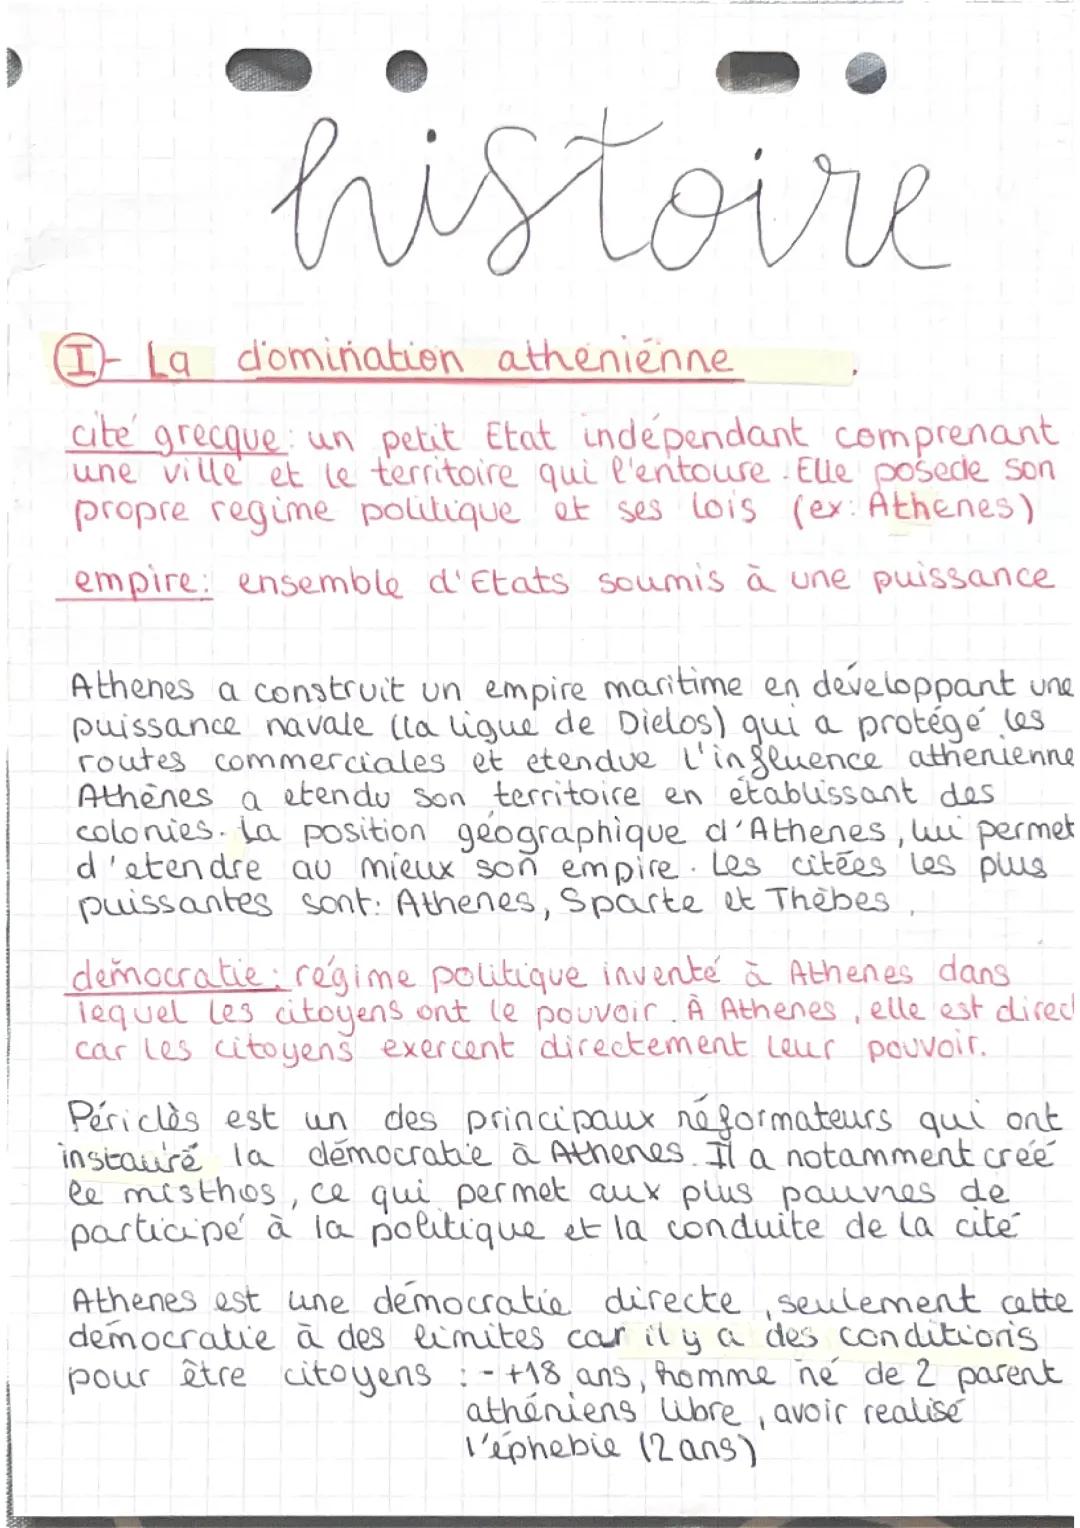 histoire
I - La domination athéniénne
cité grecque: un petit Etat indépendant comprenant
une ville et le territoire qui l'entoure. Elle posede son
propre regime politique et ses lois (ex: Athenes)
empire: ensemble d'Etats soumis à une puissance
Athenes a construit un empire maritime en développant une
puissance navale (la ligue de Dielos) qui a protégé les
routes commerciales et etendue l'influence athenienne
Athènes a etendu son territoire en établissant des
colonies. La position géographique d'Athenes, lui permet
d'etendre au mieux son empire. Les citées les plus
puissantes sont: Athenes, Sparte et Thèbes.
démocratie: régime politique inventé à Athenes dans
lequel les citoyens ont le pouvoir. À Athenes, elle est direct
car les citoyens exercent directement leur pouvoir.
Périclès est un des principaux réformateurs qui ont
instauré la démocratie à Athenes. Il a notamment créé
le misthos, ce qui permet aux plus pauvres de
participé à la politique et la conduite de la cité
Athenes est une démocratie directe, seulement cette
démocratie à des limites car il y a des conditions
pour être citoyens : - +18 ans, homme né de 2 parent
athéniens libre, avoir realisé
l'éphebie (2 ans)